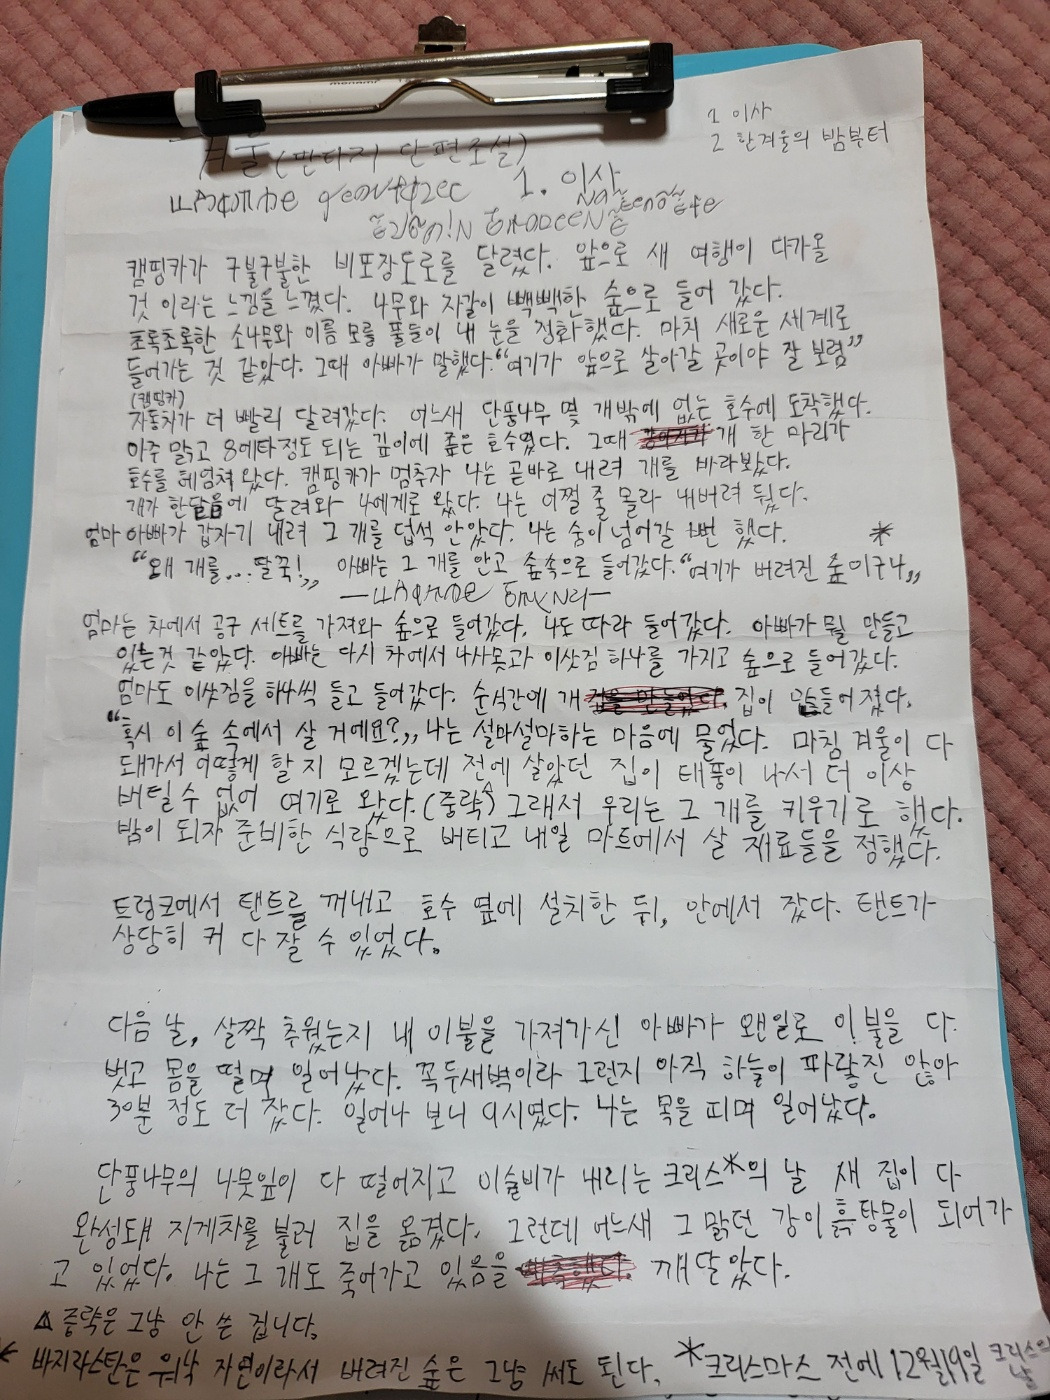 1 이사
2 한겨울의 밤부터
겨울 (판타지 단편소설)
1. 이사
캠핑카가 구불구불한 비포장도로를 달렸다. 앞으로 새 여행이 다가올
것 이라는 느낌을 느꼈다. 나무와 자갈이 빽빽한 숲으로 들어 갔다.
초록초록한 소나무와 이름 모를 풀들이 내 눈을 정화했다. 마치 새로운 세계로
들어가는 것 같았다. 그때 아빠가 말했다. “여기가 앞으로 살아갈 곳이야 잘 보렴”
(캠핑카)
자동차가 더 빨리 달려갔다. 어느새 단풍나무 몇 개밖에 없는 호수에 도착했다.
아주 맑고 8메타정도 되는 깊이에 좁은 호수였다. 그때 개 한 마리가
호수를 헤엄쳐 왔다. 캠핑카가 멈추자 나는 곧바로 내려 개를 바라봤다.
개가 한달음에 달려와 나에게로 왔다. 나는 어쩔 줄 몰라 내버려 뒀다.
엄마 아빠가 갑자기 내려 그 개를 덥석 안았다. 나는 숨이 넘어갈 뻔 했다. *
“왜 개를... 딸꾹!„ 아빠는 그 개를 안고 숲속으로 들어갔다. “여기가 버려진 숲이구나„
엄마는 차에서 공구 세트를 가져와 숲으로 들어갔다. 나도 따라 들어갔다. 아빠가 뭘 만들고
있는것 같았다. 아빠는 다시 차에서 나사못과 이삿짐 하나를 가지고 숲으로 들어갔다.
엄마도 이삿짐을 하나씩 들고 들어갔다. 순식간에 개 집이 만들어졌다.
“혹시 이 숲 속에서 살 거예요?„ 나는 설마설마하는 마음에 물었다. 마침 겨울이 다
돼가서 어떻게 할 지 모르겠는데 전에 살았던 집이 태풍이 나서 더 이상
버틸 수 없어 여기로 왔다. (중략△) 그래서 우리는 그 개를 키우기로 했다.
밤이 되자 준비한 식량으로 버티고 내일 마트에서 살 재료들을 정했다.
트렁크에서 탠트를 꺼내고 호수 옆에 설치한 뒤, 안에서 잤다. 탠트가
상당히 커 다 잘 수 있었다.
다음 날, 살짝 추웠는지 내 이불을 가져가신 아빠가 왠일로 이불을 다
벗고 몸을 떨며 일어났다. 꼭두새벽이라 그런지 아직 하늘이 파랗진 않아
30분 정도 더 잤다. 일어나 보니 9시였다. 나는 목을 피며 일어났다.
단풍나무의 나뭇잎이 다 떨어지고 이슬비가 내리는 크리스*의 날 새 집이 다
완성돼 지게차를 불러 집을 옮겼다. 그런데 어느새 그 맑던 강이 흙탕물이 되어가
고 있었다. 나는 그 개도 죽어가고 있음을 깨달았다.
△ 중략은 그냥 안 쓴 겁니다.
* 바지라스탄은 워낙 자연이라서 버려진 숲은 그냥 써도 된다. *크리스마스 전에 12월19일 크리스의 날